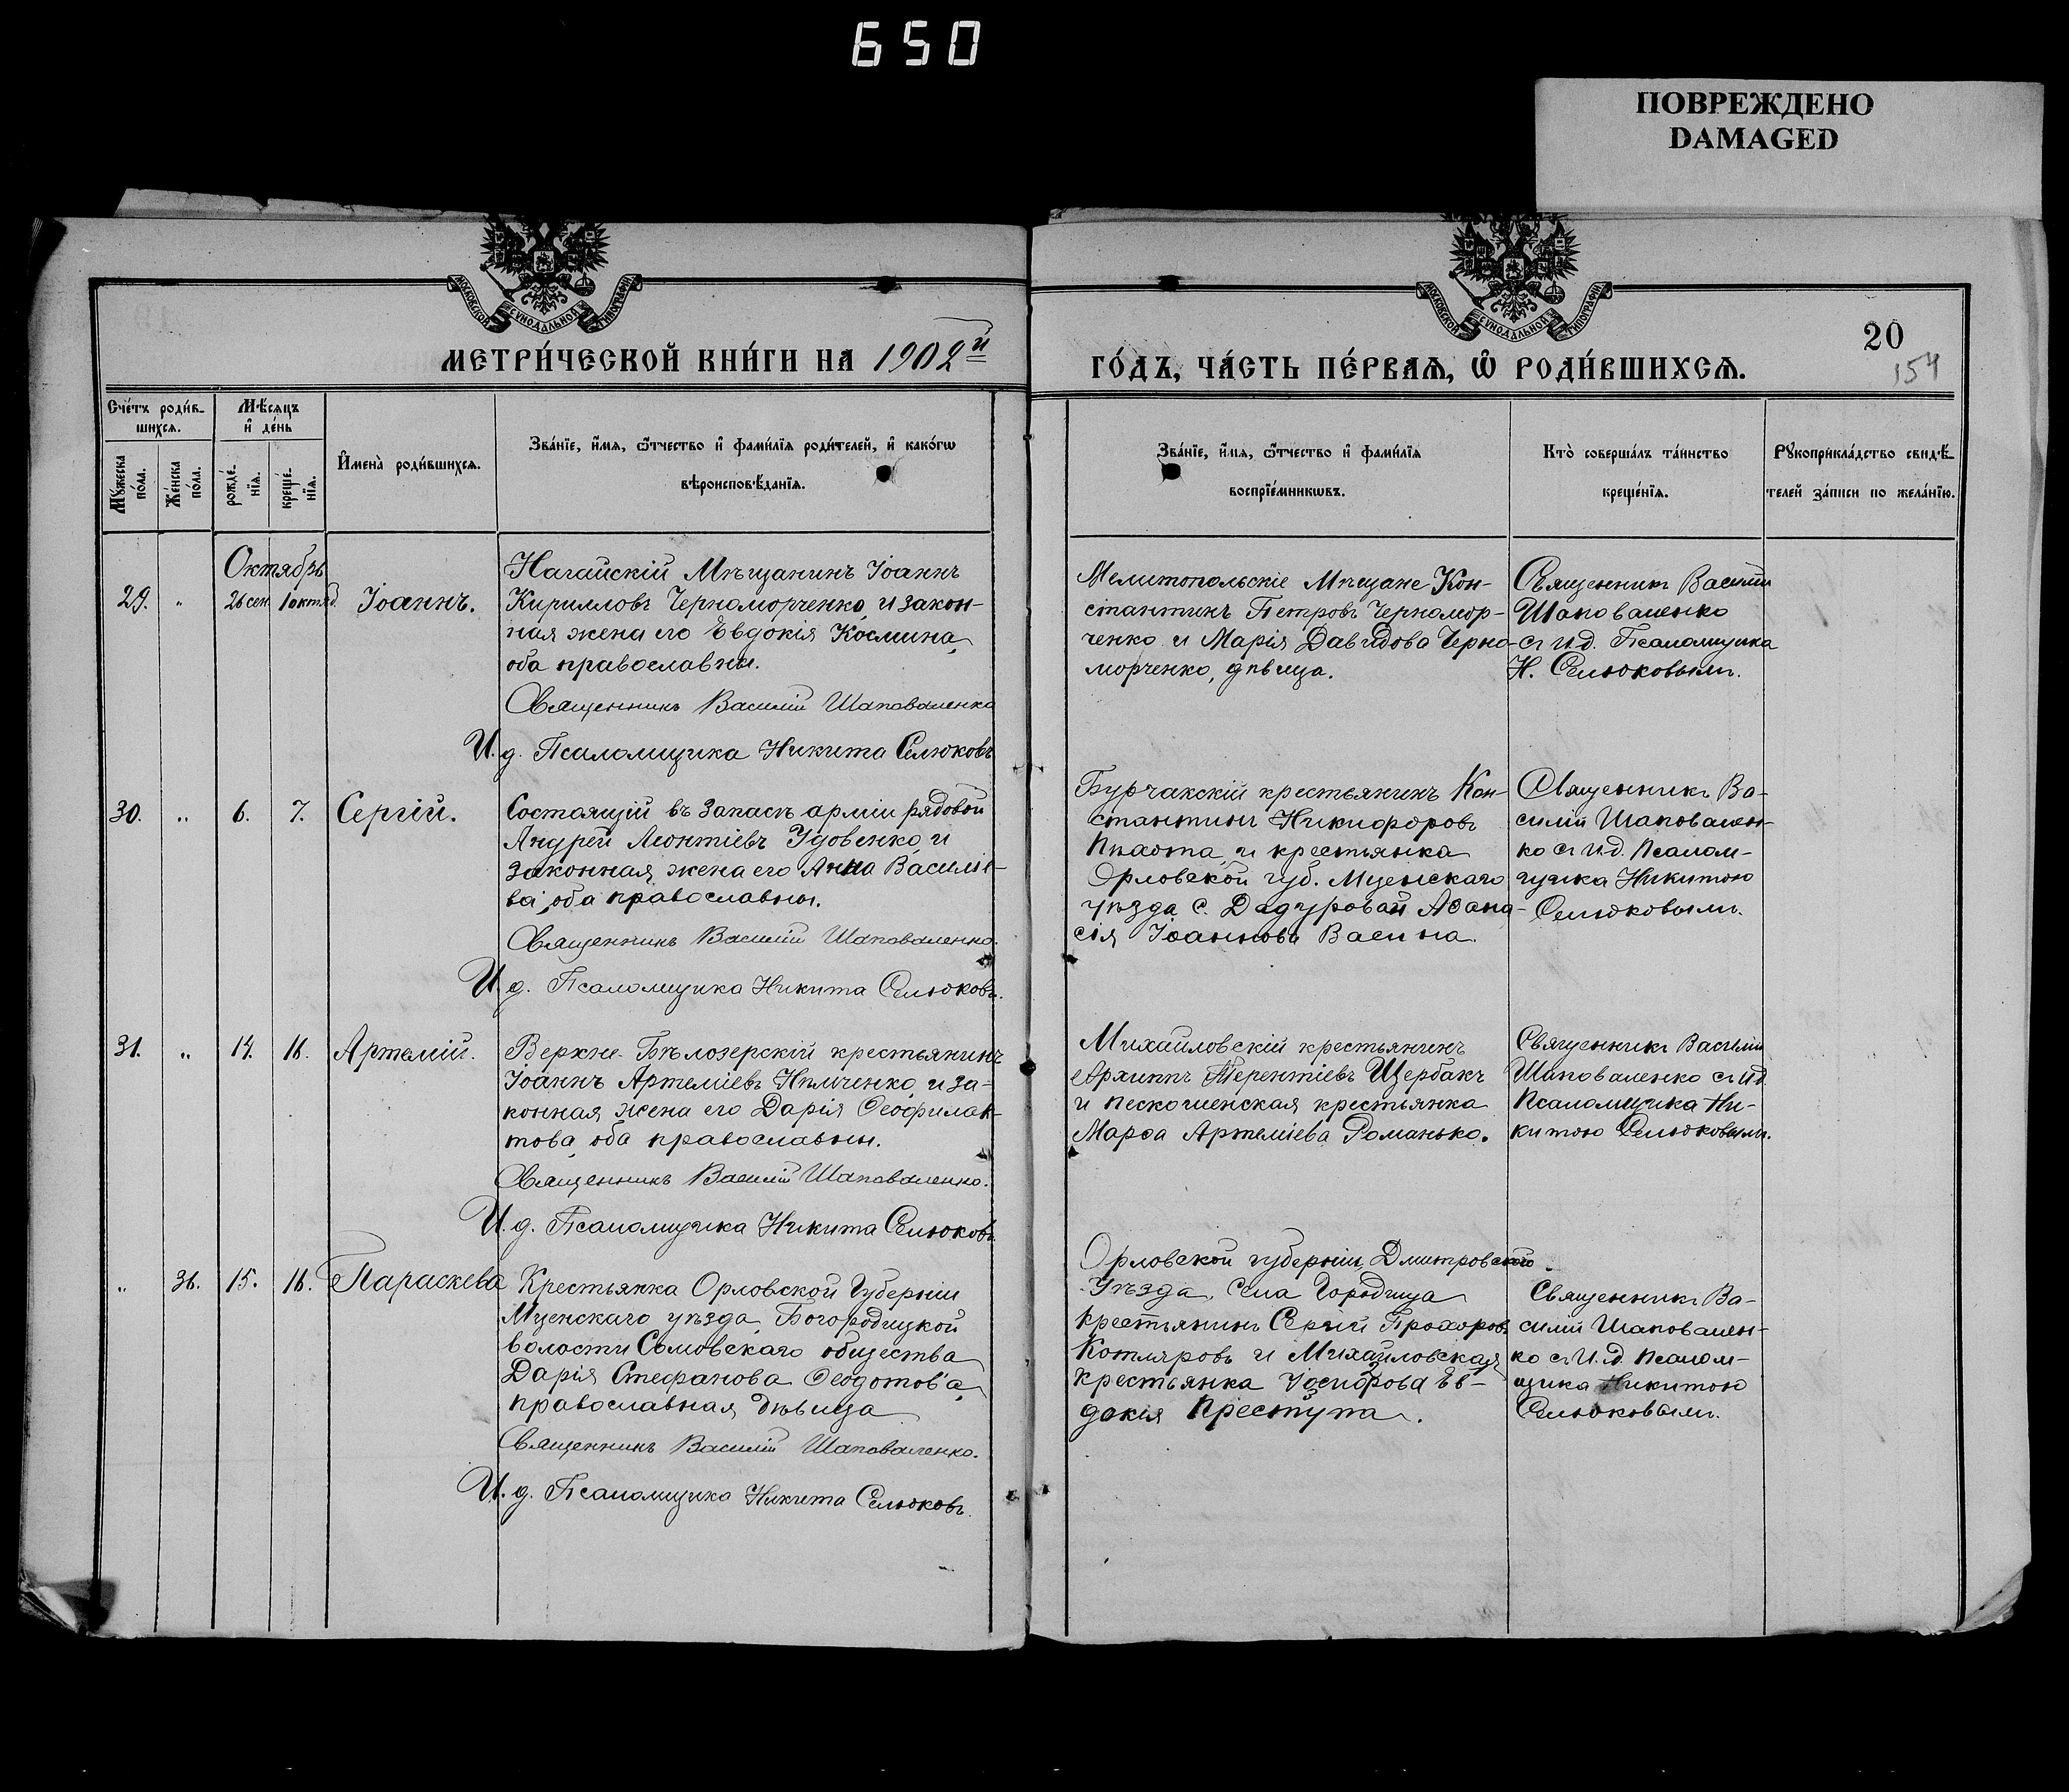 650
ПОВРЕЖДЕНО
DAMAGED
МОСКОВСКОЙ СУНОДАЛЬНОЙ ТИПОГРАФІИ
МОСКОВСКОЙ СУНОДАЛЬНОЙ ТИПОГРАФІИ
20
154
МЕТРИ́ЧЕСКОЙ КНИ́ГИ НА 1902й
ГО́ДЪ, ЧА́СТЬ ПЕ́РВАѦ, Ѡ҆ РОДИ́ВШИХСѦ.
Сче́тъ роди́в-
шихсѧ.
Мѣ́сѧцъ
и҆ де́нь
Мꙋ́жеска по́ла.
Же́нска по́ла.
рожде́-
нїѧ.
креще́-
нїѧ.
И҆мена̀ роди́вшихсѧ.
Зва́нїе, и҆́мѧ, ѻ҆́тчество и҆ фами́лїѧ роди́телей, и҆ како́гѡ
вѣроисповѣ́данїѧ.
Зва́нїе, и҆́мѧ, ѻ҆́тчество и҆ фами́лїѧ
воспрїе́мникѡвъ.
Кто̀ соверша́лъ та́инство
креще́нїѧ.
Рꙋкоприкла́дство свидѣ́-
телей за́писи по жела́нїю.
Октябрь
29. " 26 сен. 1 октяб. Іоаннъ.
Нагайскій Мѣщанинъ Іоаннъ
Кирилловъ Черноморченко, и закон-
ная жена его Евдокія Космина,
оба православны.
Священникъ Василій Шаповаленко
И. д. Псаломщика Никита Селюковъ
Мелитопольскіе Мѣщане Кон-
стантинъ Петровъ Черномор-
ченко и Марія Давидова Черно-
морченко, дѣвица.
Священникъ Василій
Шаповаленко
съ и.д. Псаломщика
Н. Селюковымъ.
30. " 6. 7. Сергій.
Состоящій въ запасѣ арміи рядовой
Андрей Леонтіевъ Удовенко, и
законная жена его Анна Василье-
ва, оба православны.
Священникъ Василій Шаповаленко.
И. д. Псаломщика Никита Селюковъ.
Бурчакскій крестьянинъ Кон-
стантинъ Никифоровъ
Пыхота и крестьянка
Орловской губ. Мценскаго
уѣзда с. Дадуровой Аѳана-
сія Іоаннова Васина.
Священникъ Ва-
силій Шаповален-
ко съ и.д. Псалом-
щика Никитою
Селюковымъ.
31. " 14. 16. Артемій.
Верхне-Бѣлозерскій крестьянинъ
Іоаннъ Артеміевъ Нѣмченко, и за-
конная жена его Дарія Ѳеофилак-
това, оба православны.
Священникъ Василій Шаповаленко.
И. д. Псаломщика Никита Селюковъ
Михайловскій крестьянинъ
Архиппъ Терентіевъ Щербакъ
и пескошенская крестьянка
Марѳа Артеміева Романько.
Священникъ Василій
Шаповаленко съ и.д.
Псаломщика Ни-
китою Селюковымъ.
" 36. 15. 16. Параскева
Крестьянка Орловской Губерніи
Мценскаго уѣзда, Богородицкой
волости Сомовскаго общества
Дарія Стефанова Ѳедотова,
православная, дѣвица
Священникъ Василій Шаповаленко.
И. д. Псаломщика Никита Селюковъ.
Орловской губерніи, Дмитровского
Уѣзда, Села Городища
крестьянинъ Сергій Прохоровъ
Котляровъ и Михайловская
крестьянка Іосифова Ев-
докія Преступа.
Священникъ Ва-
силій Шаповален-
ко съ И. д. Псалом-
щика Никитою
Селюковымъ.